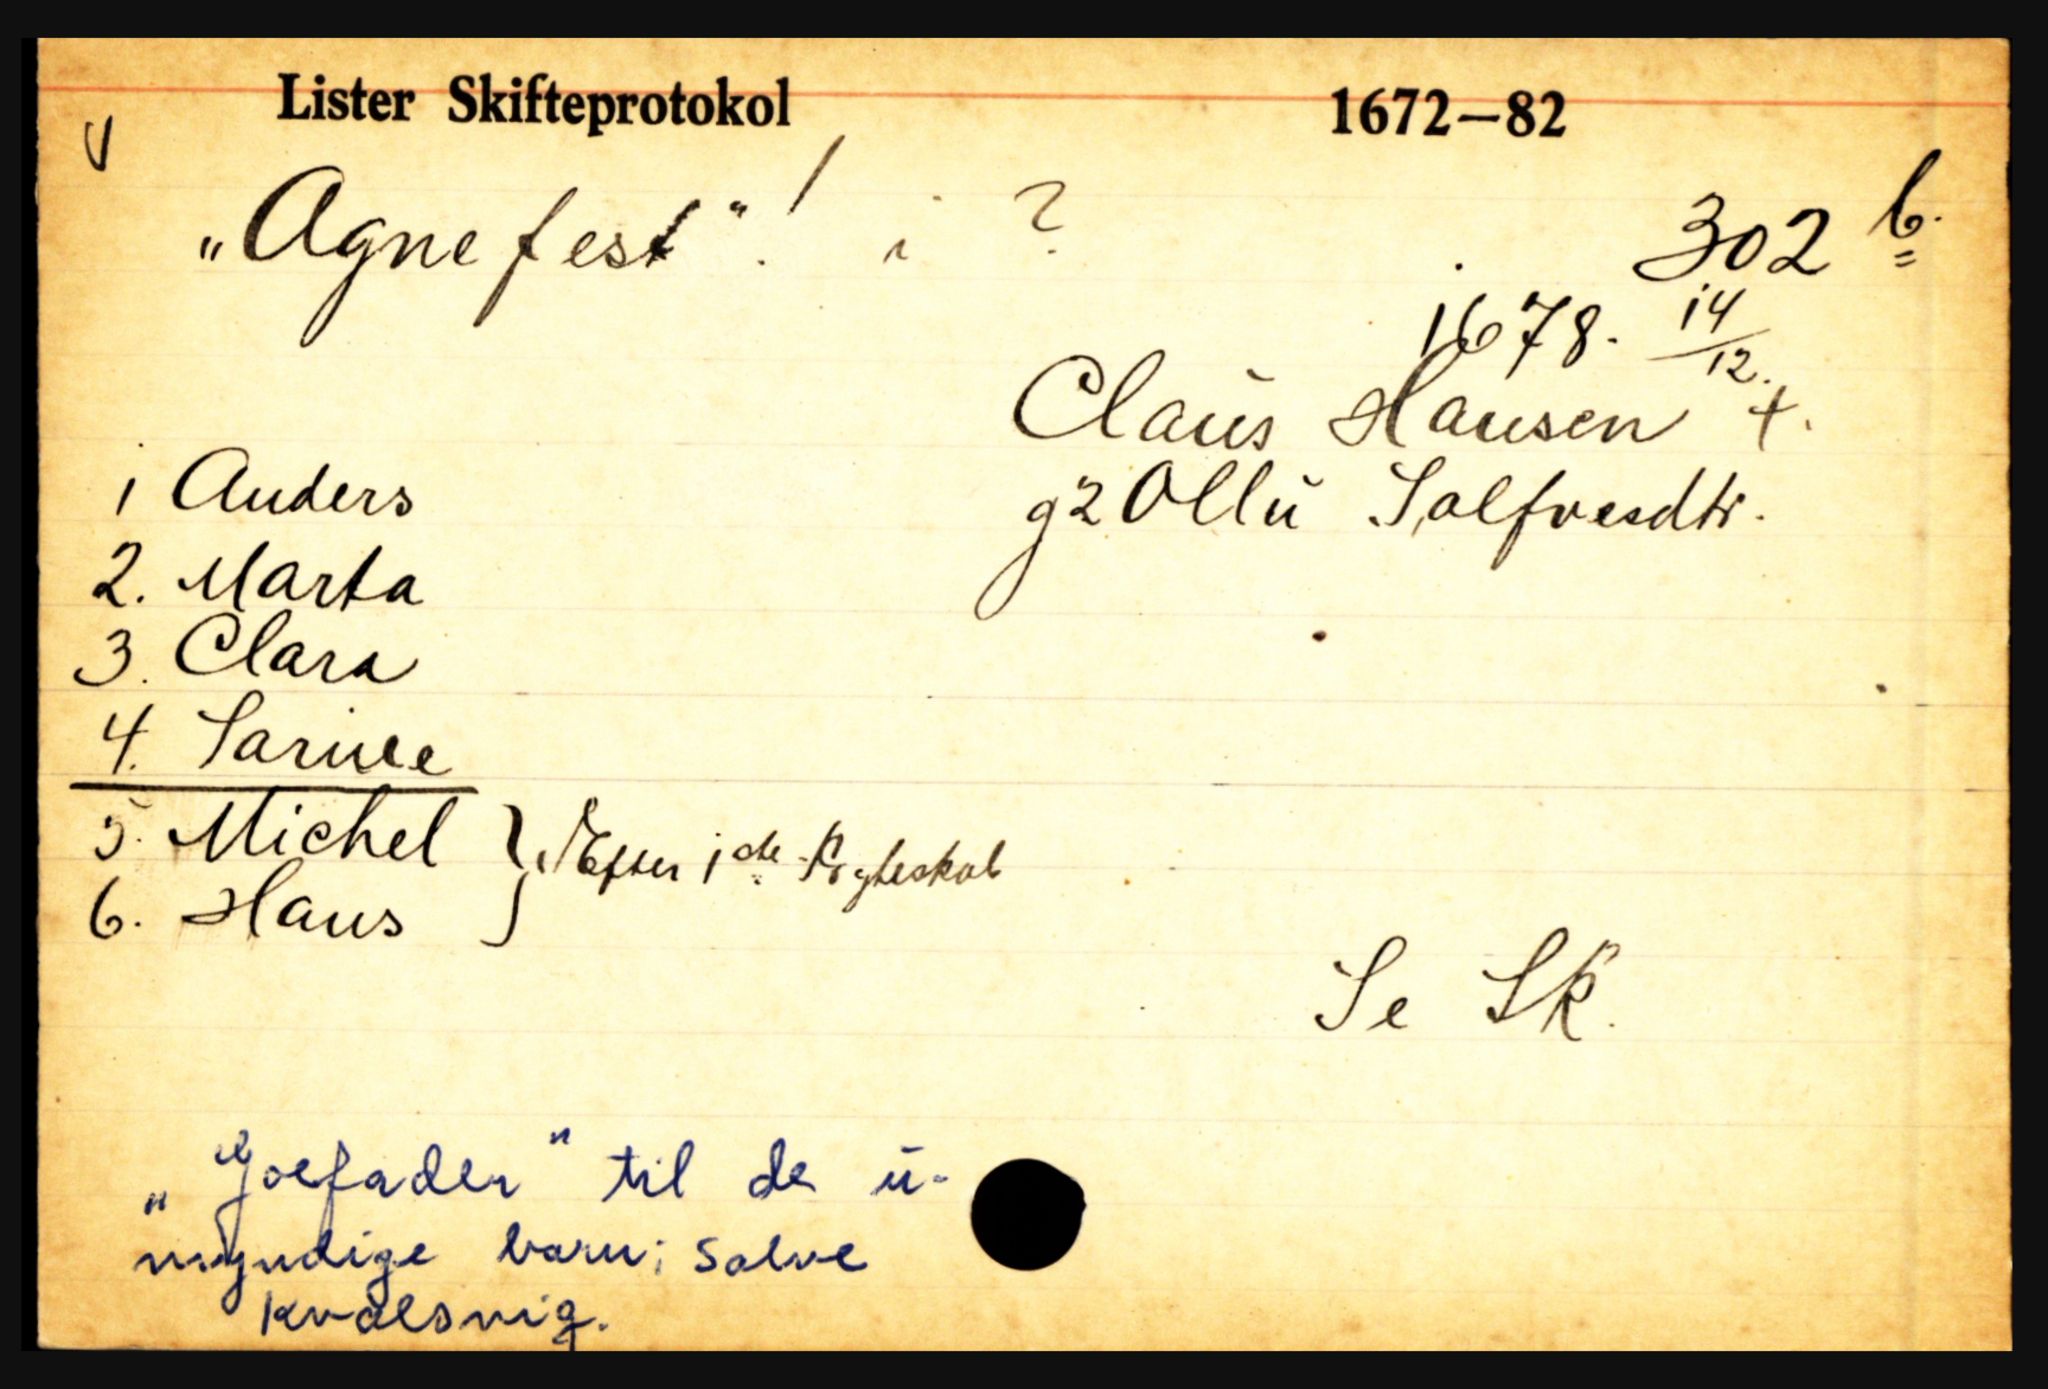 Lister Skifteprotokol 1672—82
V
„Agnefest"! i ?
302 b.
1678. 14/12.
Claus Hansen +.
g2 Ollu Salfvesdtr.
1 Anders
2. Marta
3. Clara
4. Sarive
5. Michel
6. Hans
} Efter 1ste Ægteskab
Se Sk.
„Goefader" til de u-
myndige barn; Salve
Kvalsvig.